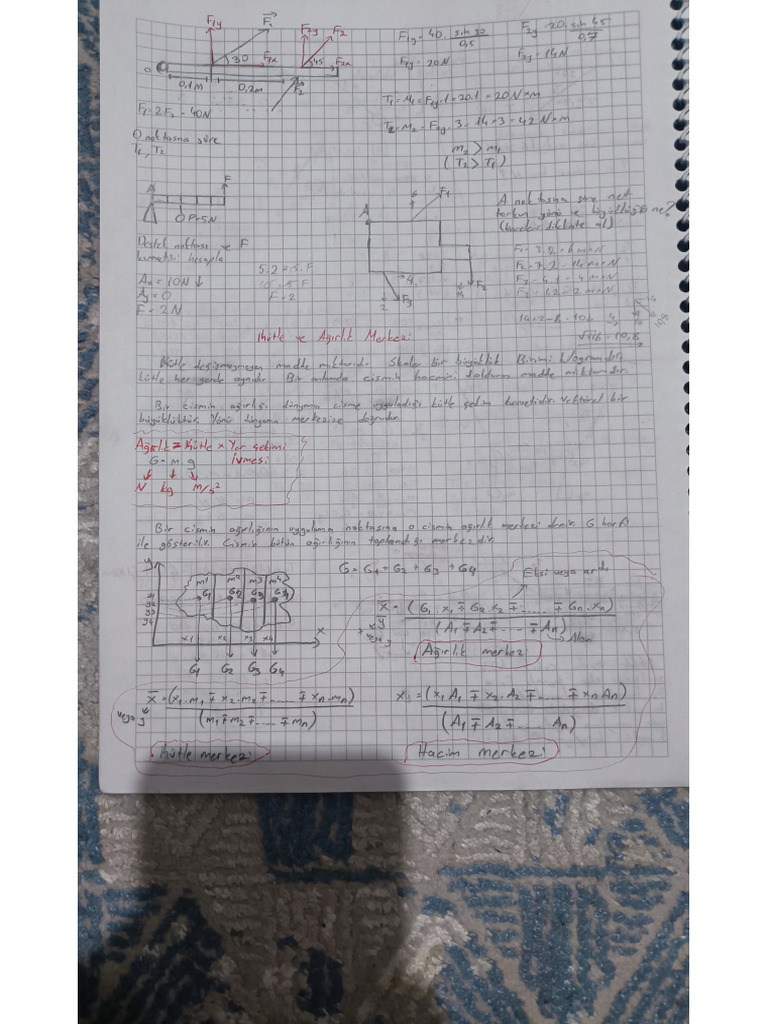 F1y F⃗1 F2y F2
30 F1x 45 F2x
O
0,1m 0,2m F2
F1=2F2=40N
O noktasına göre
T1, T2
F1y= 40. sin 30
0,5
F1y= 20N
F2y 20. sin 45
0,7
F2y= 14N
T1=M1=F1y.1=20.1=20N×m
T2=M2=F2y.3=14×3=42N×m
M2 > M1
(T2 > T1)
A F
P=5N
Destek noktası ve F
kuvvetini hesapla
Ax = 10N ↓
Ay = 0
F = 2N
5.2=5.F
10=5F
F=2
A F1
6
4
2 F3 F2
A noktasına göre net
torkun yönü ve büyüklüğü ne?
(kareleri dikkate al)
√116 = 10,8
Kütle ve Ağırlık Merkezi
Kütle değişmeyen madde miktarıdır. Skaler bir büyüklük. Birimi kilogramdır.
Kütle her yerde aynıdır. Bir anlamda cismin hacmini dolduran madde miktarıdır.
Bir cismin ağırlığı dünyanın cisme uyguladığı kütle çekim kuvvetidir. Vektörel bir
büyüklüktür. Yönü dünyanın merkezine doğrudur.
Ağırlık = Kütle × Yer çekimi
G = m . g İvmesi
N kg m/s²
Bir cismin ağırlığının uygulama noktasına o cismin ağırlık merkezi denir. G harfi
ile gösterilir. Cismin bütün ağırlığının toplandığı merkezdir.
G = G1 + G2 + G3 + G4
Eksi veya artı
y
m1 m2 m3 m4
G1 G2 G3 G4
y1
y2
y3
y4
x1 x2 x3 x4 x
G1 G2 G3 G4
x̄ = (G1 . x1 ∓ G2 . x2 ∓ ...... ∓ Gn . xn)
veya y
(A1 ∓ A2 ∓ ...... ∓ An)
Alan
Ağırlık merkezi
x̄ = (x1 . m1 ∓ x2 . m2 ∓ ...... ∓ xn . mn)
veya y
(m1 ∓ m2 ∓ ...... ∓ mn)
Kütle merkezi
x = (x1 A1 ∓ x2 . A2 ∓ ...... ∓ xn An)
(A1 ∓ A2 ∓ ...... An)
Hacim merkezi